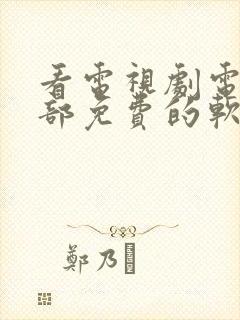 看電視劇電
部免費的軟
鄭乃